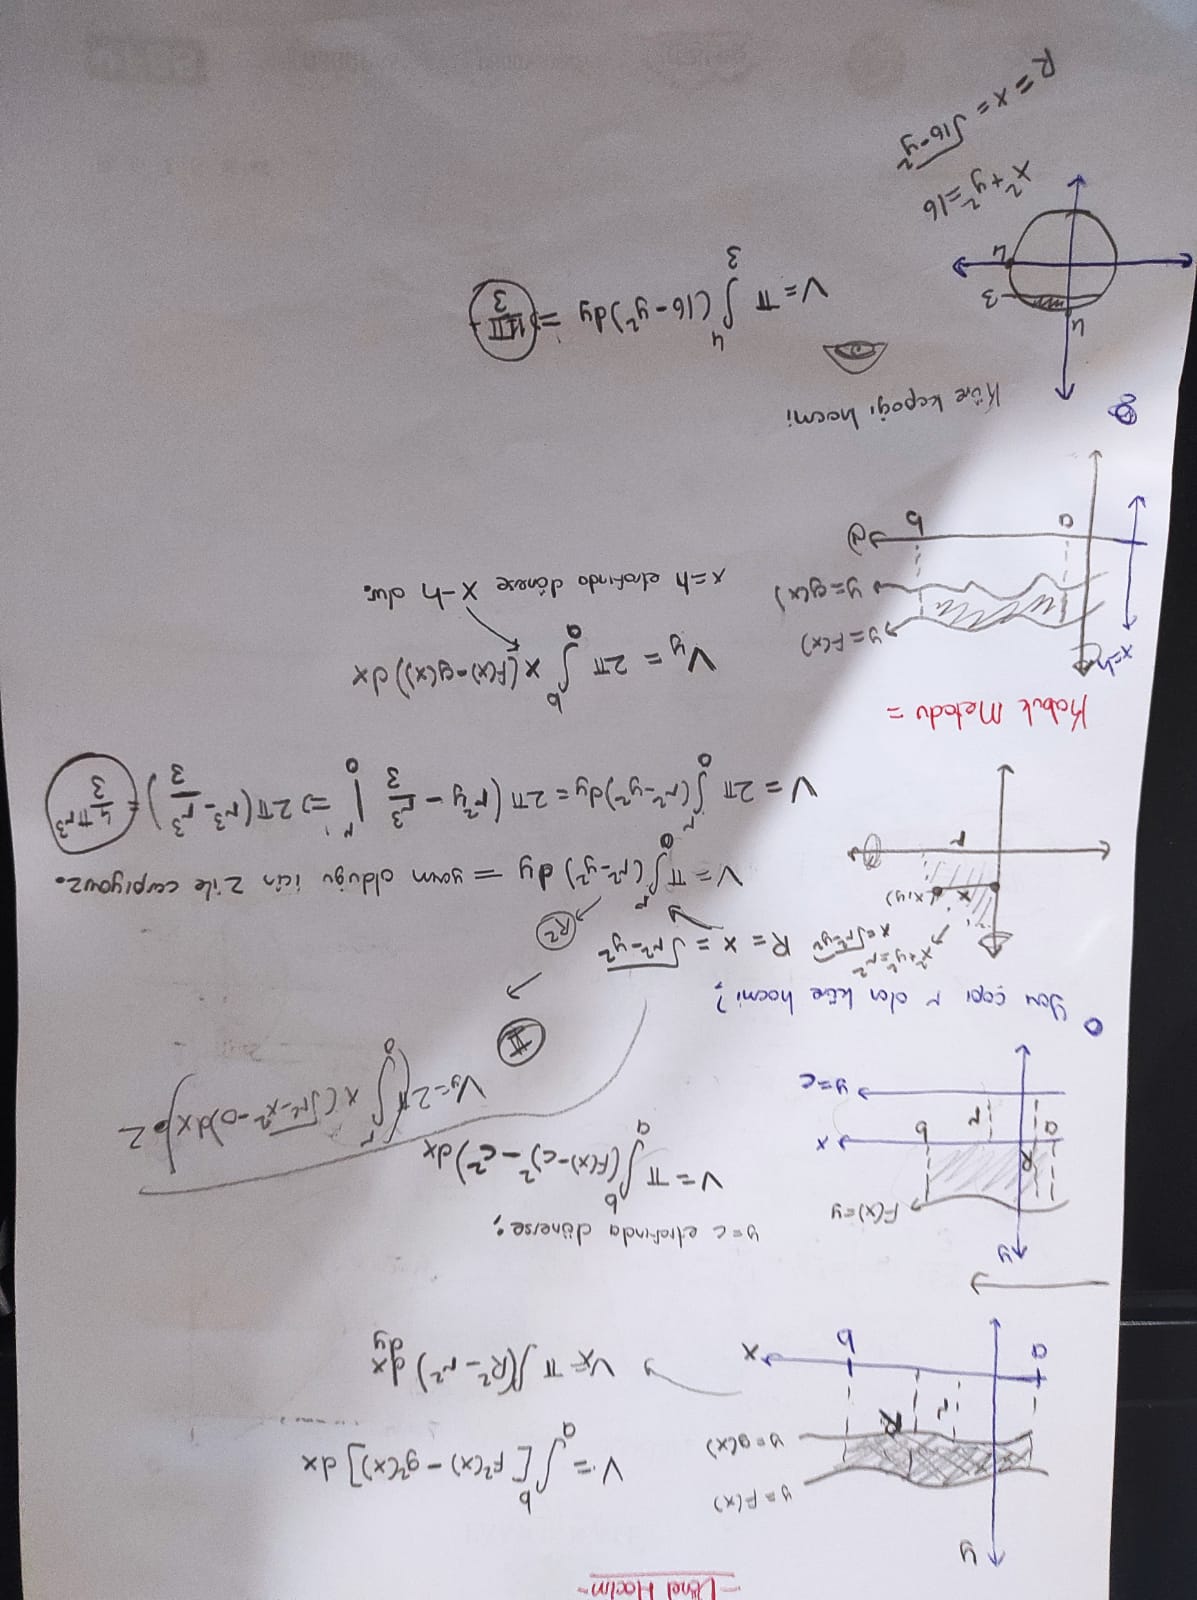 - Dönel Hacim -
y
y = F(x)
y = g(x)
r R
a b x
V = ∫ₐᵇ [F²(x) - g²(x)] dx
Vx = π ∫(R² - r²) dx
dy
y
F(x) = y
R
a r b x
y=c
y=c etrafında dönerse;
V = π ∫ₐᵇ (F(x)-c)² - c²) dx
Vy = 2π(∫₀ʳ x(√r²-x² - 0)dx).2
II
Yarı çapı r olan küre hacmi?
x²+y²=r²
x=√r²-y²
x (x,y)
r
R = x = √r²-y²
R²
V = π ∫₀ʳ (r²-y²) dy = yarım olduğu için 2 ile çarpıyoruz.
V = 2π ∫₀ʳ (r²-y²)dy = 2π(r²y - r³/3 |₀ʳ => 2π(r³ - r³/3) = 4/3 πr³
Kabuk Metodu =
x=h
y = F(x)
y = g(x)
a b
Vy = 2π ∫ₐᵇ x(F(x)-g(x)) dx
x=h etrafında dönerse x-h dur.
Küre kapağı hacmi
4
3
4
V = π ∫₃⁴ (16-y²)dy => 11π/3
x²+y²=16
R = x = √16-y²